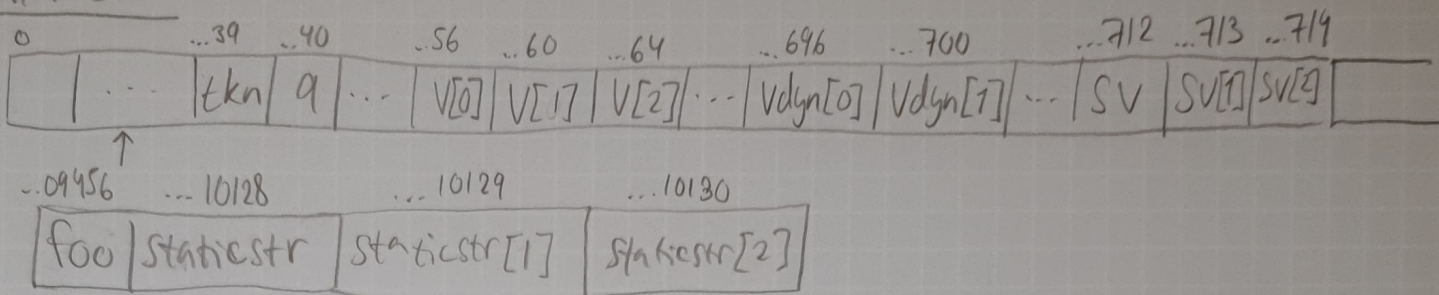 0 ...39 ..40 ..56 ...60 ...64 ...696 ...700 ...712 ...713 ...714
... tkn a ... V[0] V[1] V[2] ... Vdyn[0] Vdyn[1] ... SV SV[1] SV[2]
...09456 ...10128 ...10129 ...10130
foo staticstr staticstr[1] staticstr[2]